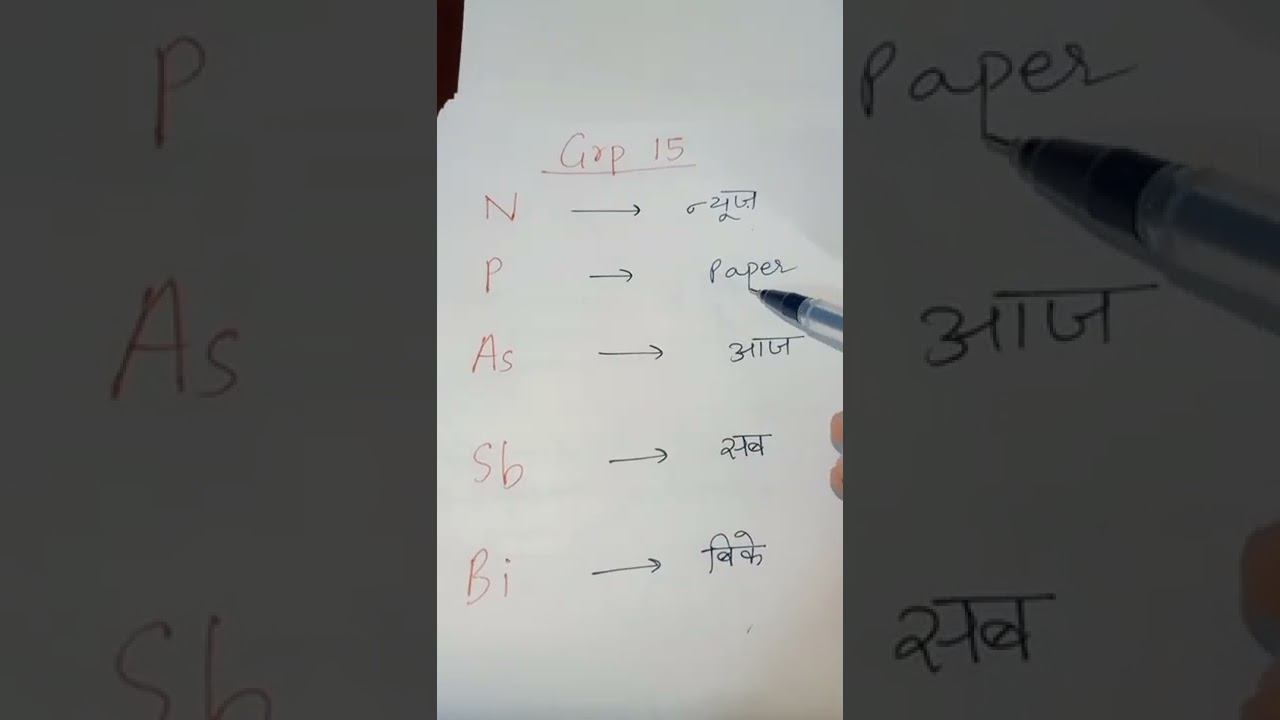 Grp 15
N → न्यूज
P → Paper
As → आज
Sb → सब
Bi → बिके